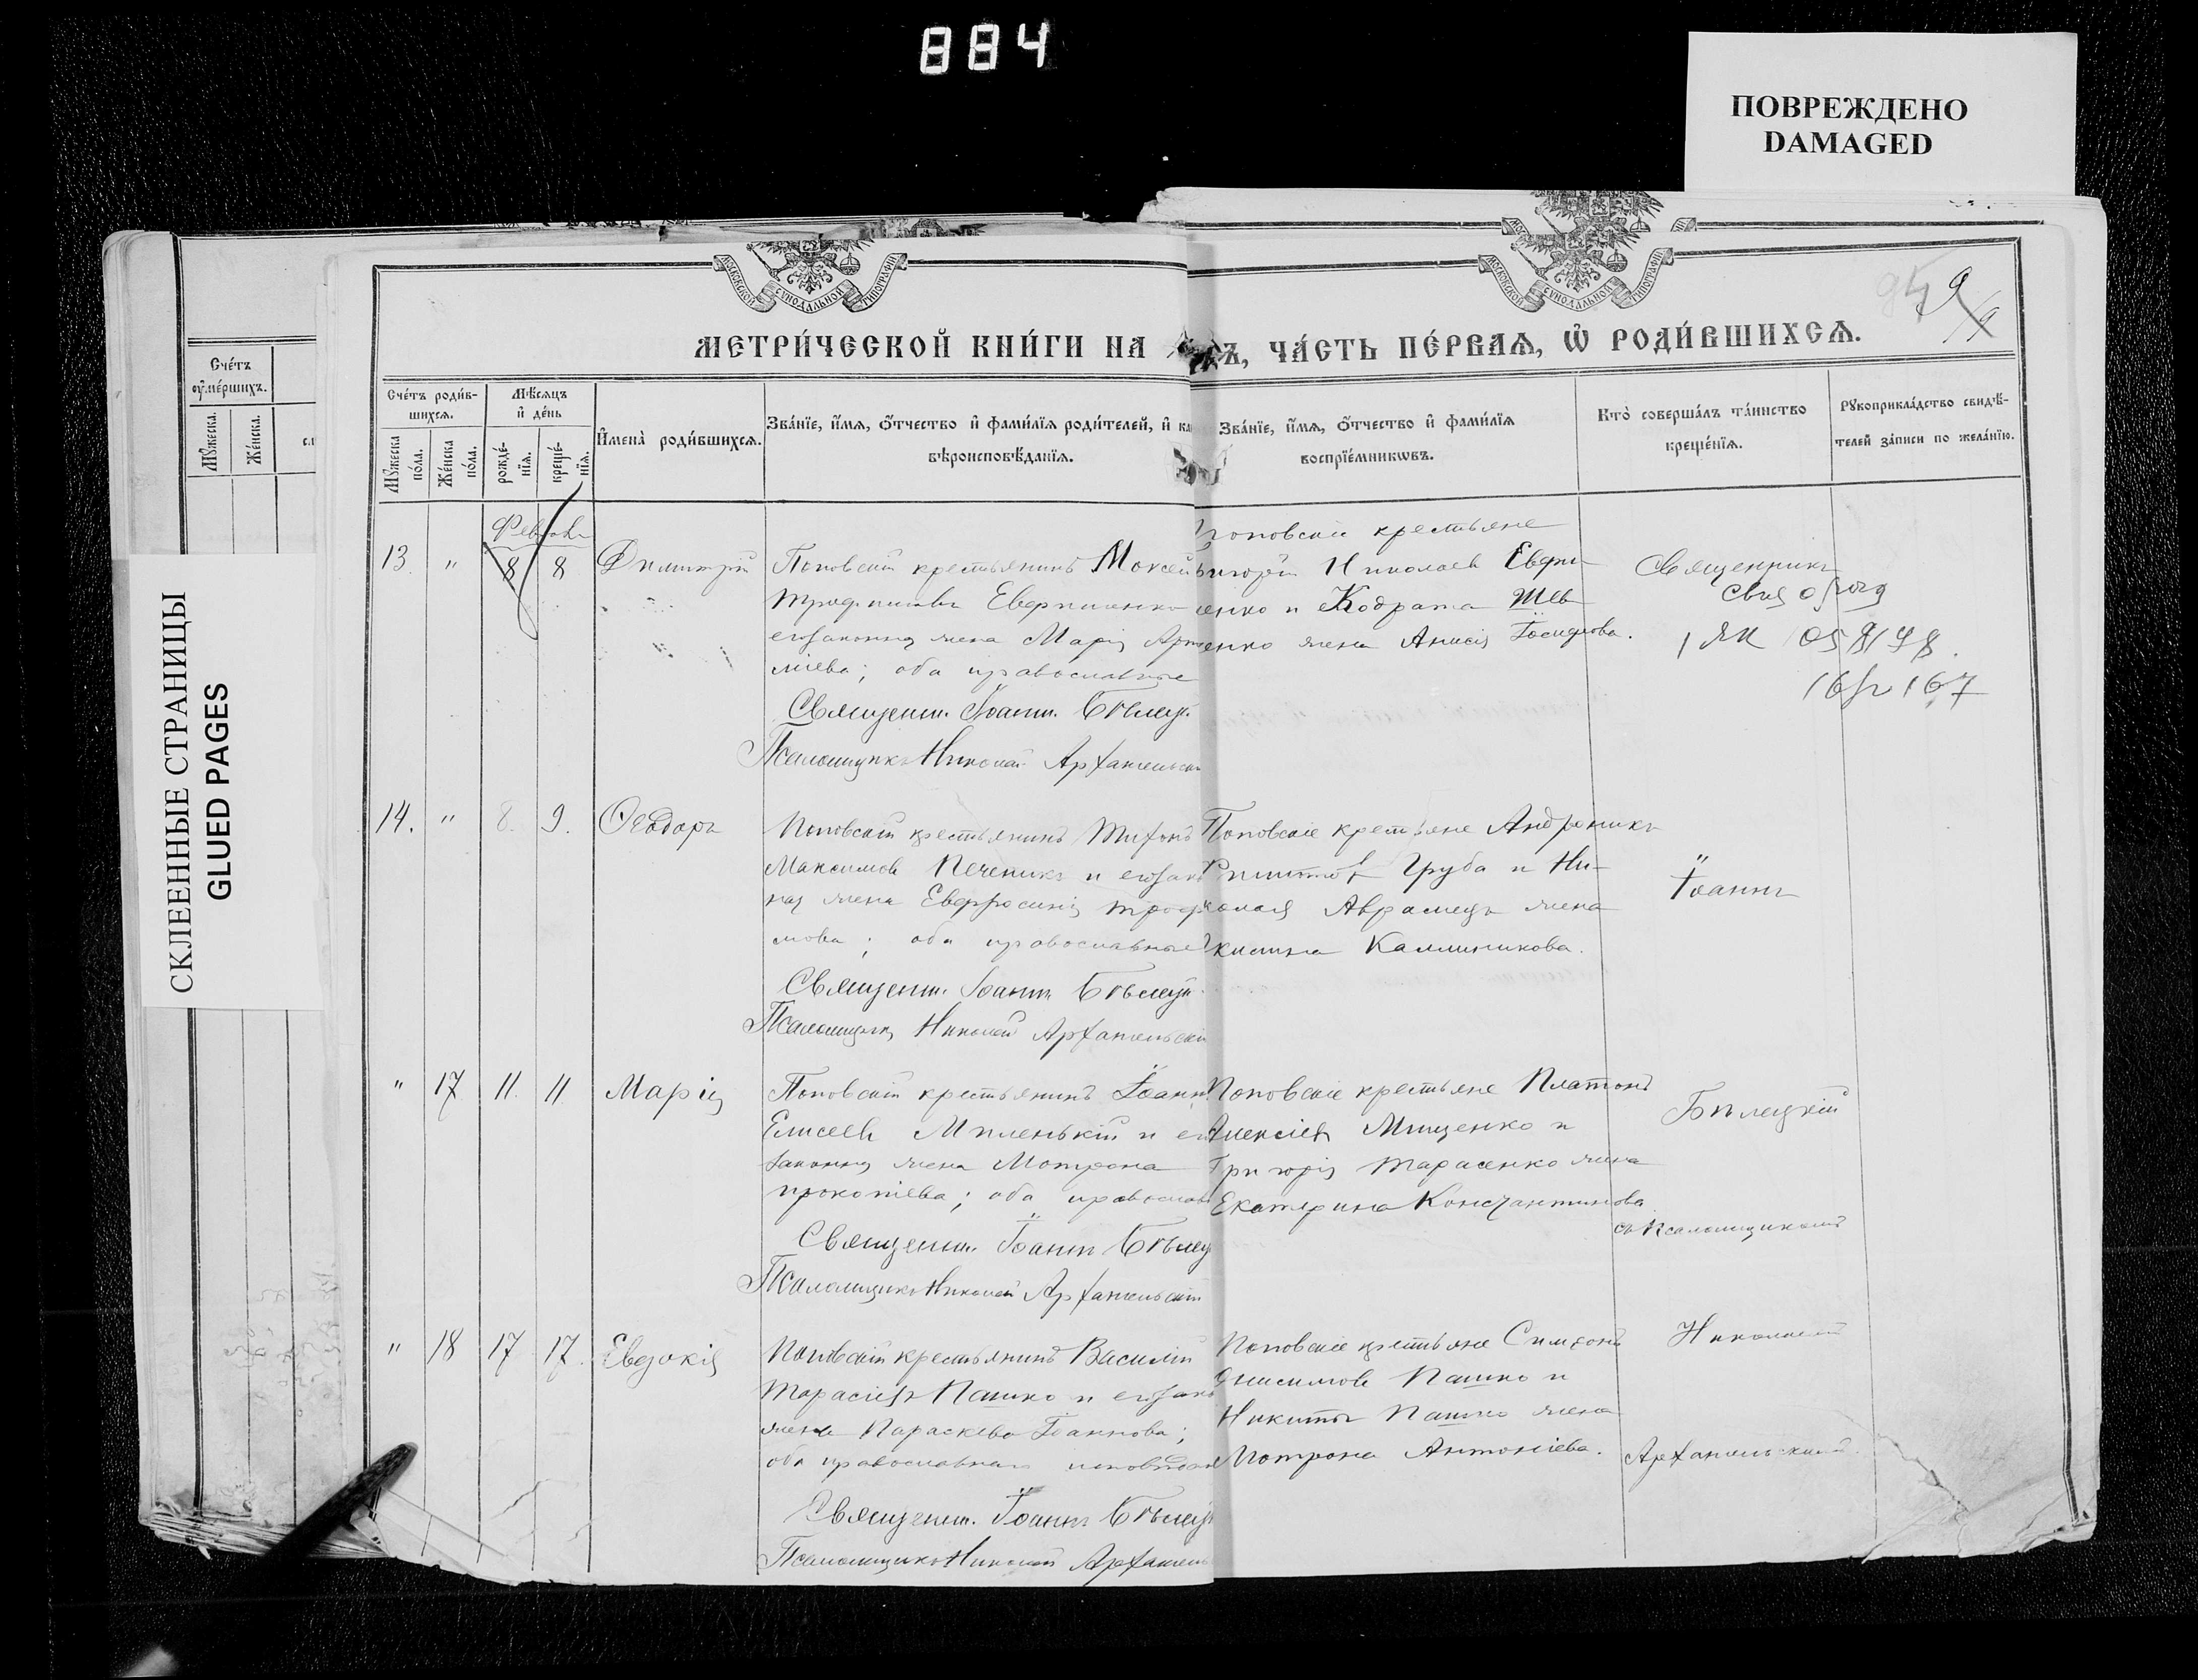 884
ПОВРЕЖДЕНО
DAMAGED
СКЛЕЕННЫЕ СТРАНИЦЫ
GLUED PAGES
Сче́тъ
оу҆ме́ршихъ.
Мꙋ́жеска.
Же́нска.
МОСКОВСКОЙ СѴНОДАЛЬНОЙ ТИПОГРАФІИ
МОСКОВСКОЙ СѴНОДАЛЬНОЙ ТИПОГРАФІИ
МЕТРИ́ЧЕСКОЙ КНИ́ГИ НА
Ъ, ЧА́СТЬ ПЕ́РВАѦ, Ѡ҆ РОДИ́ВШИХСѦ.
9
Сче́тъ роди́в-
шихсѧ.
Мꙋ́жеска по́ла.
Же́нска по́ла.
Мѣ́сѧцъ
и҆ де́нь
рожде́-
нїѧ.
креще́-
нїѧ.
И҆мена̀ роди́вшихсѧ.
Зва́нїе, и҆́мѧ, ѻ҆́тчество и҆ фами́лїѧ роди́телей, и҆ ка
вѣроисповѣ́данїѧ.
Зва́нїе, и҆́мѧ, ѻ҆́тчество и҆ фами́лїѧ
воспрїе́мникѡвъ.
Кто̀ соверша́лъ та́инство
креще́нїѧ.
Рꙋкоприкла́дство свидѣ́-
телей за́писи по жела́нїю.
13 " 8 8 Димитрій
Поповскій крестьянинъ
Трофимовъ Евфименко
законная жена Марія
міева; оба православные
Священ. Іоаннъ Бѣлец.
Псаломщикъ Николай Архангельскі
Поповскіе крестьяне
Николаевъ Евфи
енко и Кодрата Шев
енко жена Анисія Іосифова.
Священникъ
167
14. " 8. 9. Ѳеодоръ
Поповскій крестьянинъ Тихонъ
Максимовъ Печеникъ и его зак
ная жена Евфросинія Троф
мова; оба православные
Священ. Іоаннъ Бѣлец
Псаломщикъ Николай Архангельскі
Поповскіе крестьяне Андроникъ
Груба и Ни-
колая Аврамецъ жена
Калиникова.
Іоаннъ
" 17 11. 11 Марія
Поповскій крестьянинъ Іоанн
Елисеевъ Миленькій и ег
законная жена Мотрона
Прокопіева; оба православ
Священ. Іоаннъ Бѣлец
Псаломщикъ Николай Архангельскій
Поповскіе крестьяне Платонъ
Алексіевъ Мищенко и
Григорія Тарасенко жена
Екатерина Константинова
Бѣлецкій
съ Псаломщикомъ
" 18 17 17. Евдокія
Поповскій крестьянинъ Василій
Тарасіевъ Пашко и его зако
жена Параскева Іоаннова;
оба православнаго исповѣдан
Священ. Іоаннъ Бѣлец
Псаломщикъ Николай Архангель
Поповскіе крестьяне Симеонъ
Онисимовъ Пашко и
Никиты Пашко жена
Мотрона Антоніева.
Николаемъ
Архангельскимъ.